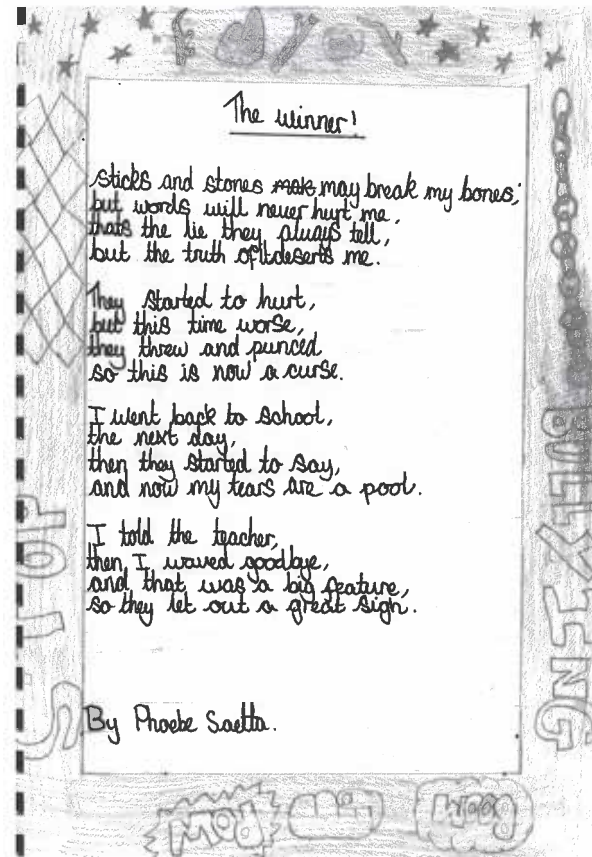 The winner!
sticks and stones mak may break my bones,
but words will never hurt me,
thats the lie they always tell,
but the truth of it deserts me.
They started to hurt,
but this time worse,
they threw and punced
so this is now a curse.
I went back to school,
the next day,
then they started to say,
and now my tears are a pool.
I told the teacher,
then I waved goodbye,
and that was a big feature,
so they let out a great sigh.
By Phoebe Saetta.
STOP
BULLYING
POW
BOOM